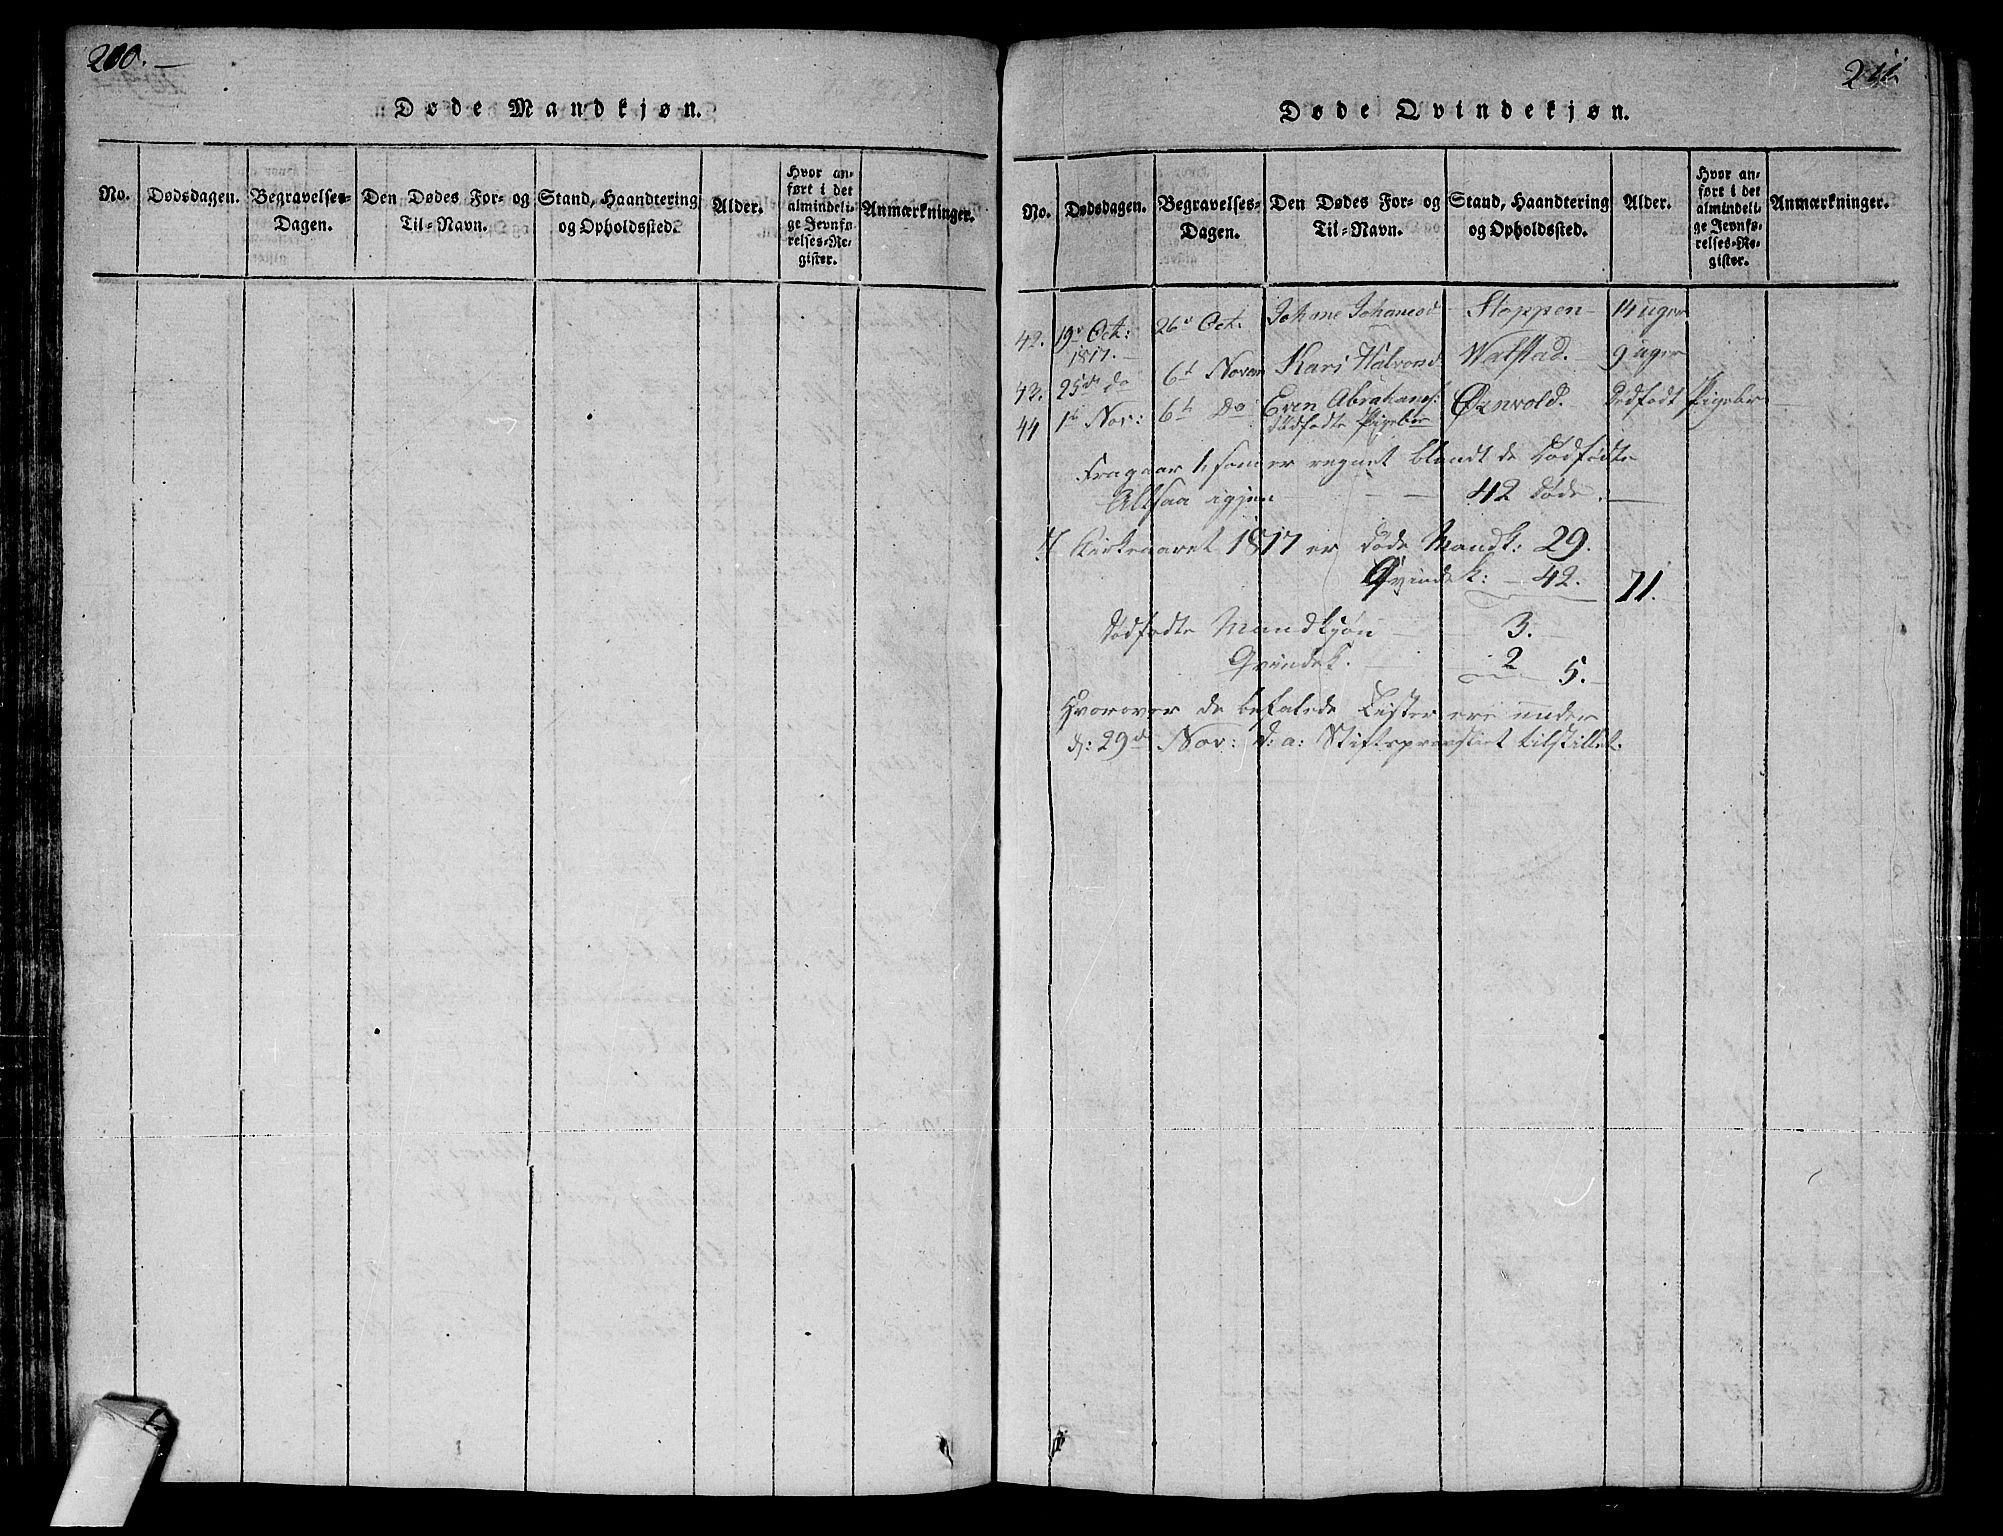 200. —
Døde Mandkjøn.
No.
Dødsdagen.
Begravelses-
Dagen.
Den Dødes For- og
Til-Navn.
Stand, Haandtering
og Opholdssted.
Alder.
Hvor an-
ført i det
almindeli-
ge Jevnfø-
relses-Re-
gister.
Anmærkninger.
Døde Qvindekjøn.
No.
Dødsdagen.
Begravelses-
Dagen.
Den Dødes For- og
Til-Navn.
Stand, Haandtering
og Opholdssted.
Alder.
Hvor an-
ført i det
almindeli-
ge Jevnfø-
relses-Re-
gister.
Anmærkninger.
42. 19d Oct: 1817. — 26d Oct. Johane Johanesd Stoppen — 14 uger
43. 25de do 6t Kari Halvorsd Walstad. — 9 uger
44 1t Nov: 6t Do Even Abrahams: Ørnvold. Dødfødt Pigebr
dødfødte Pigebr
Fragaar 1, som er regnet blandt de Dødfødte
Altsaa igjen — — 42 Døde. —
I Kirkeaaret 1817 er døde Mandk: 29.
Qvindek: — 42. 71.
Dødfødte Mandkjøn — 3.
Qvindek. — 2 5. —
Hvorover de befalede Lister ere under
d: 29d Nov: d: a: Stiftsprovstiet tilstillet.